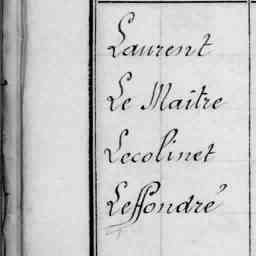 Laurent
Le Maître
Lecolinet
Leffondré